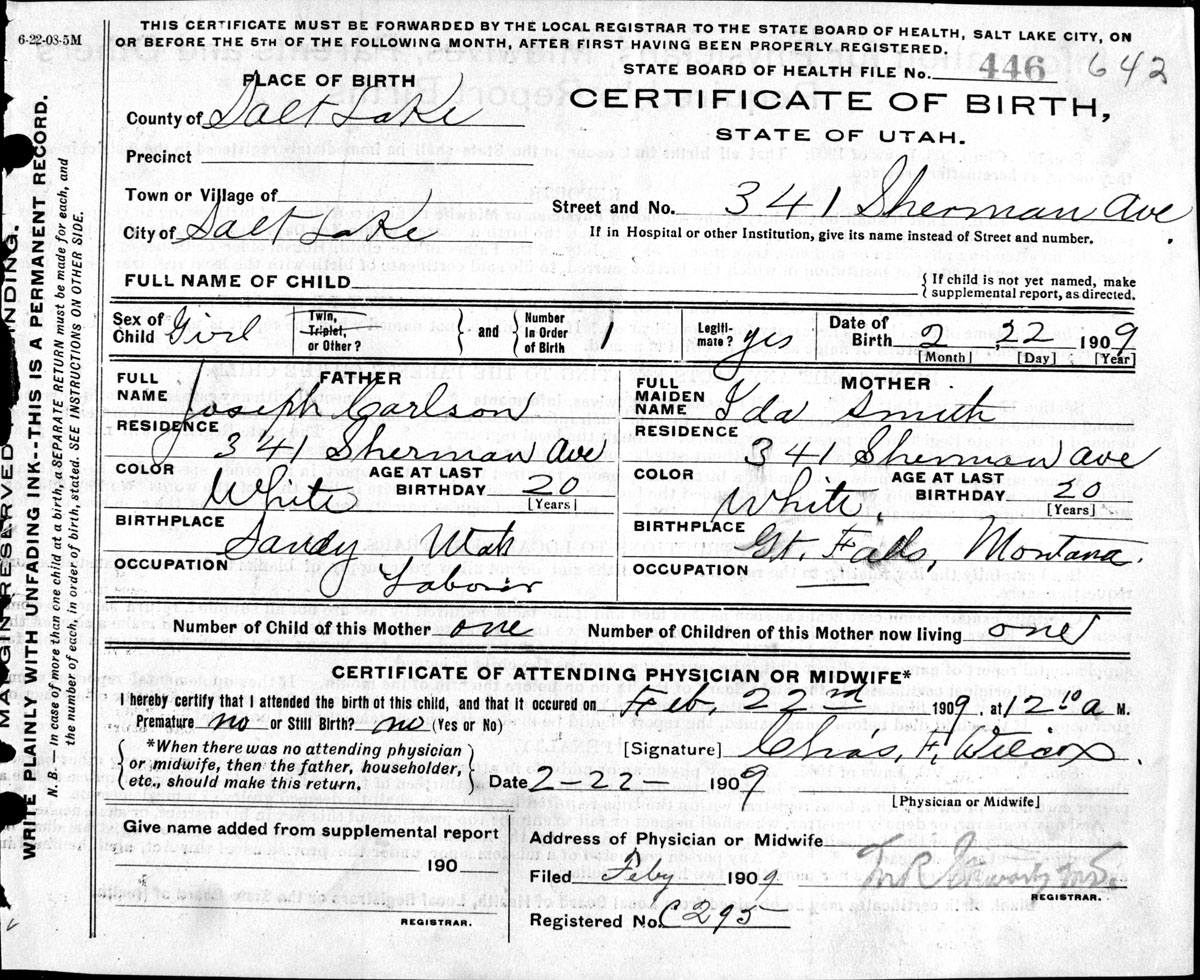 6-22-08-5M
THIS CERTIFICATE MUST BE FORWARDED BY THE LOCAL REGISTRAR TO THE STATE BOARD OF HEALTH, SALT LAKE CITY, ON
OR BEFORE THE 5TH OF THE FOLLOWING MONTH, AFTER FIRST HAVING BEEN PROPERLY REGISTERED.
STATE BOARD OF HEALTH FILE No. 446 642
PLACE OF BIRTH
CERTIFICATE OF BIRTH,
STATE OF UTAH.
County of Salt Lake
Precinct
Town or Village of
Street and No. 341 Sherman Ave
City of Salt Lake
If in Hospital or other Institution, give its name instead of Street and number.
FULL NAME OF CHILD
If child is not yet named, make
supplemental report, as directed.
Sex of Child Girl
Twin, Triplet, or Other?
and
Number in Order of Birth 1
Legiti-mate? yes
Date of Birth 2 22 1909
[Month] [Day] [Year]
FATHER
FULL NAME Joseph Carlson
RESIDENCE 341 Sherman Ave
COLOR White
AGE AT LAST BIRTHDAY 20
[Years]
BIRTHPLACE Sandy Utah
OCCUPATION Laborer
MOTHER
FULL MAIDEN NAME Ida Smith
RESIDENCE 341 Sherman Ave
COLOR White
AGE AT LAST BIRTHDAY 20
[Years]
BIRTHPLACE Gt. Falls, Montana.
OCCUPATION
Number of Child of this Mother one
Number of Children of this Mother now living one
CERTIFICATE OF ATTENDING PHYSICIAN OR MIDWIFE*
I hereby certify that I attended the birth of this child, and that it occured on Feb, 22nd 1909, at 12 10 a M.
Premature no or Still Birth? no (Yes or No)
*When there was no attending physician
or midwife, then the father, householder,
etc., should make this return.
[Signature] Chas, F. Wilcox.
Date 2-22 1909
[Physician or Midwife]
Give name added from supplemental report
190
REGISTRAR.
Address of Physician or Midwife
Filed Feby 1909
REGISTRAR.
Registered No. C295
MARGIN RESERVED
NDING.
WRITE PLAINLY WITH UNFADING INK--THIS IS A PERMANENT RECORD.
N. B.—In case of more than one child at a birth, a SEPARATE RETURN must be made for each, and
the number of each, in order of birth, stated. SEE INSTRUCTIONS ON OTHER SIDE.